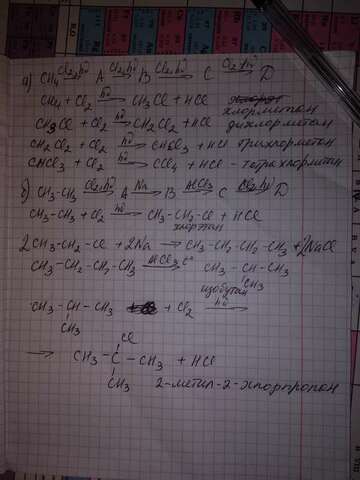 а) CH4 Cl2,hν→ A Cl2,hν→ B Cl2,hν→ C Cl2,hν→ D
CH4 + Cl2 hν→ CH3Cl + HCl
хлорметан
CH3Cl + Cl2 hν→ CH2Cl2 + HCl дихлорметан
CH2Cl2 + Cl2 hν→ CHCl3 + HCl трихлорметан
CHCl3 + Cl2 hν→ CCl4 + HCl - тетрахлорметан
б) CH3-CH3 Cl2,hν→ A Na→ B AlCl3→ C Cl2,hν→ D
CH3-CH3 + Cl2 hν→ CH3-CH2-Cl + HCl
хлорэтан
2CH3-CH2-Cl + 2Na → CH3-CH2-CH2-CH3 + 2NaCl
CH3-CH2-CH2-CH3 AlCl3 t°→ CH3-CH-CH3
CH3
изобутан
CH3-CH-CH3 + Cl2 hν→
CH3
Cl
→ CH3-C-CH3 + HCl
CH3 2-метил-2-хлорпропан